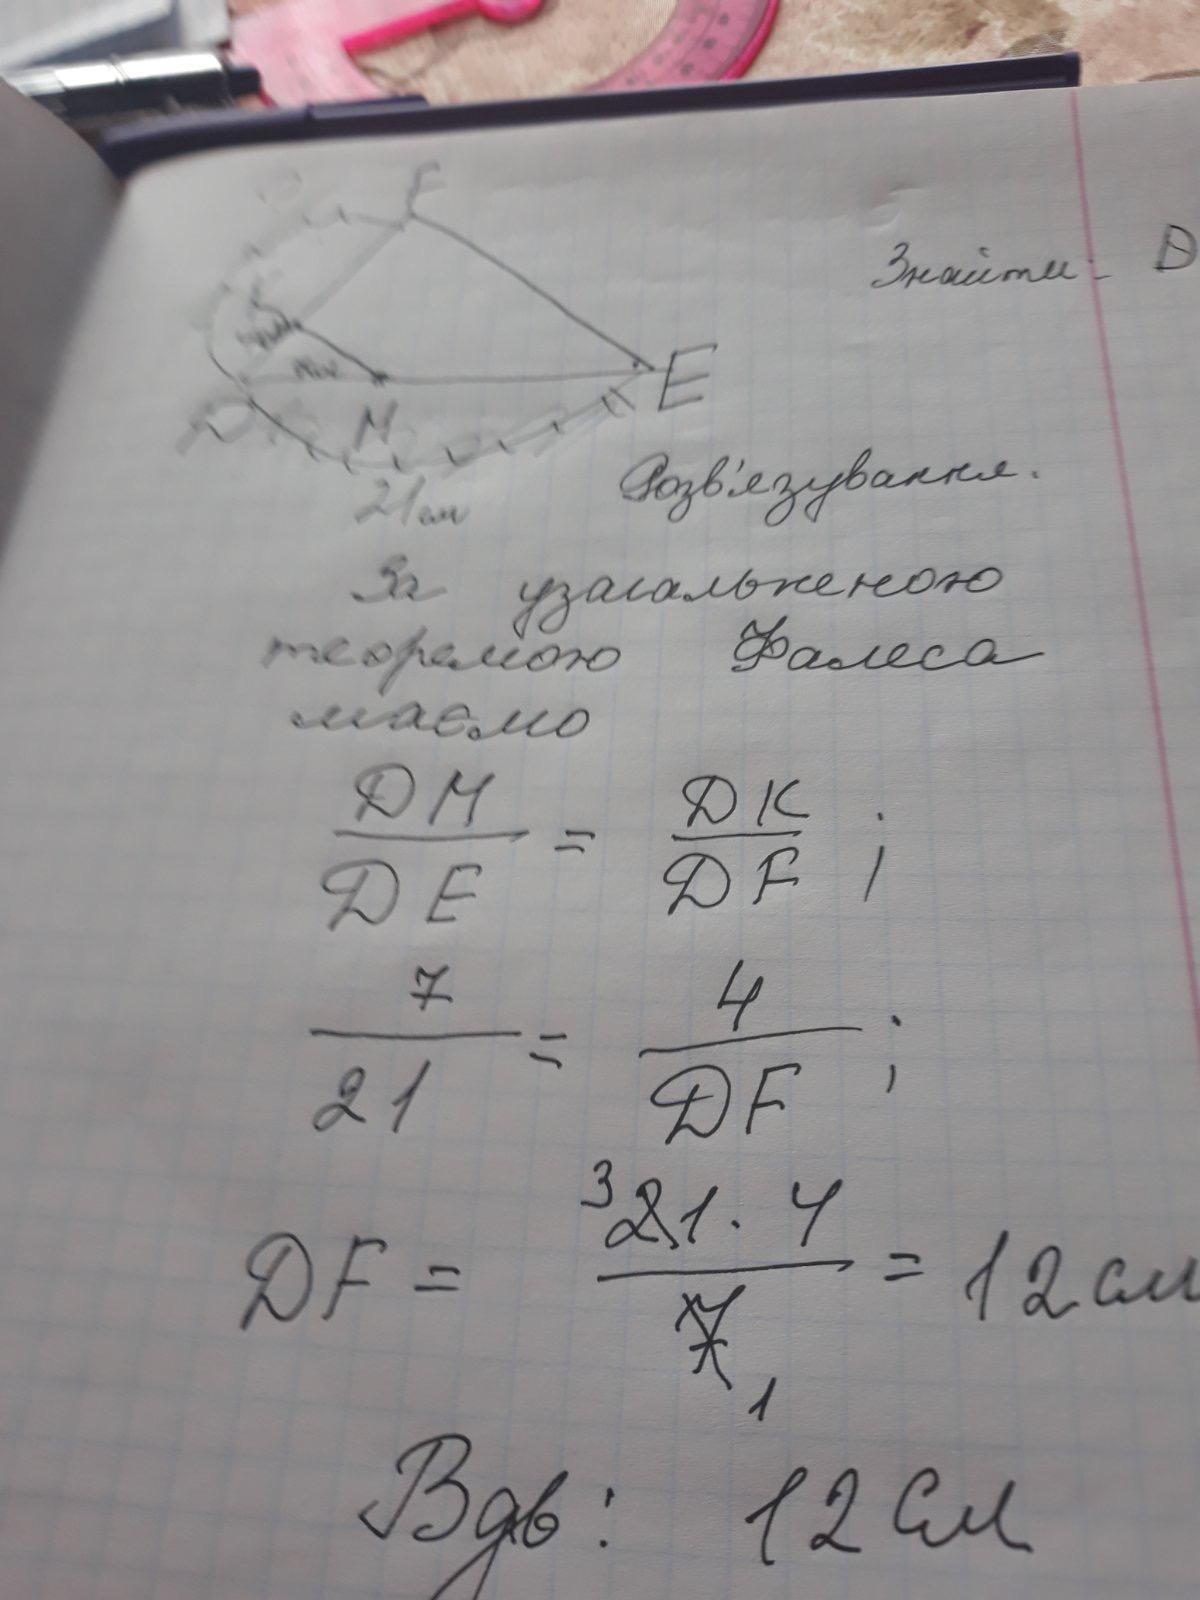 F
Знайти: D
K
E
D
M
21см
Розв'язування.
За узагальненою
теоремою Фалеса
маємо
DM/DE = DK/DF ;
7/21 = 4/DF ;
DF = ³21·4/7₁ = 12см
Вдв: 12см